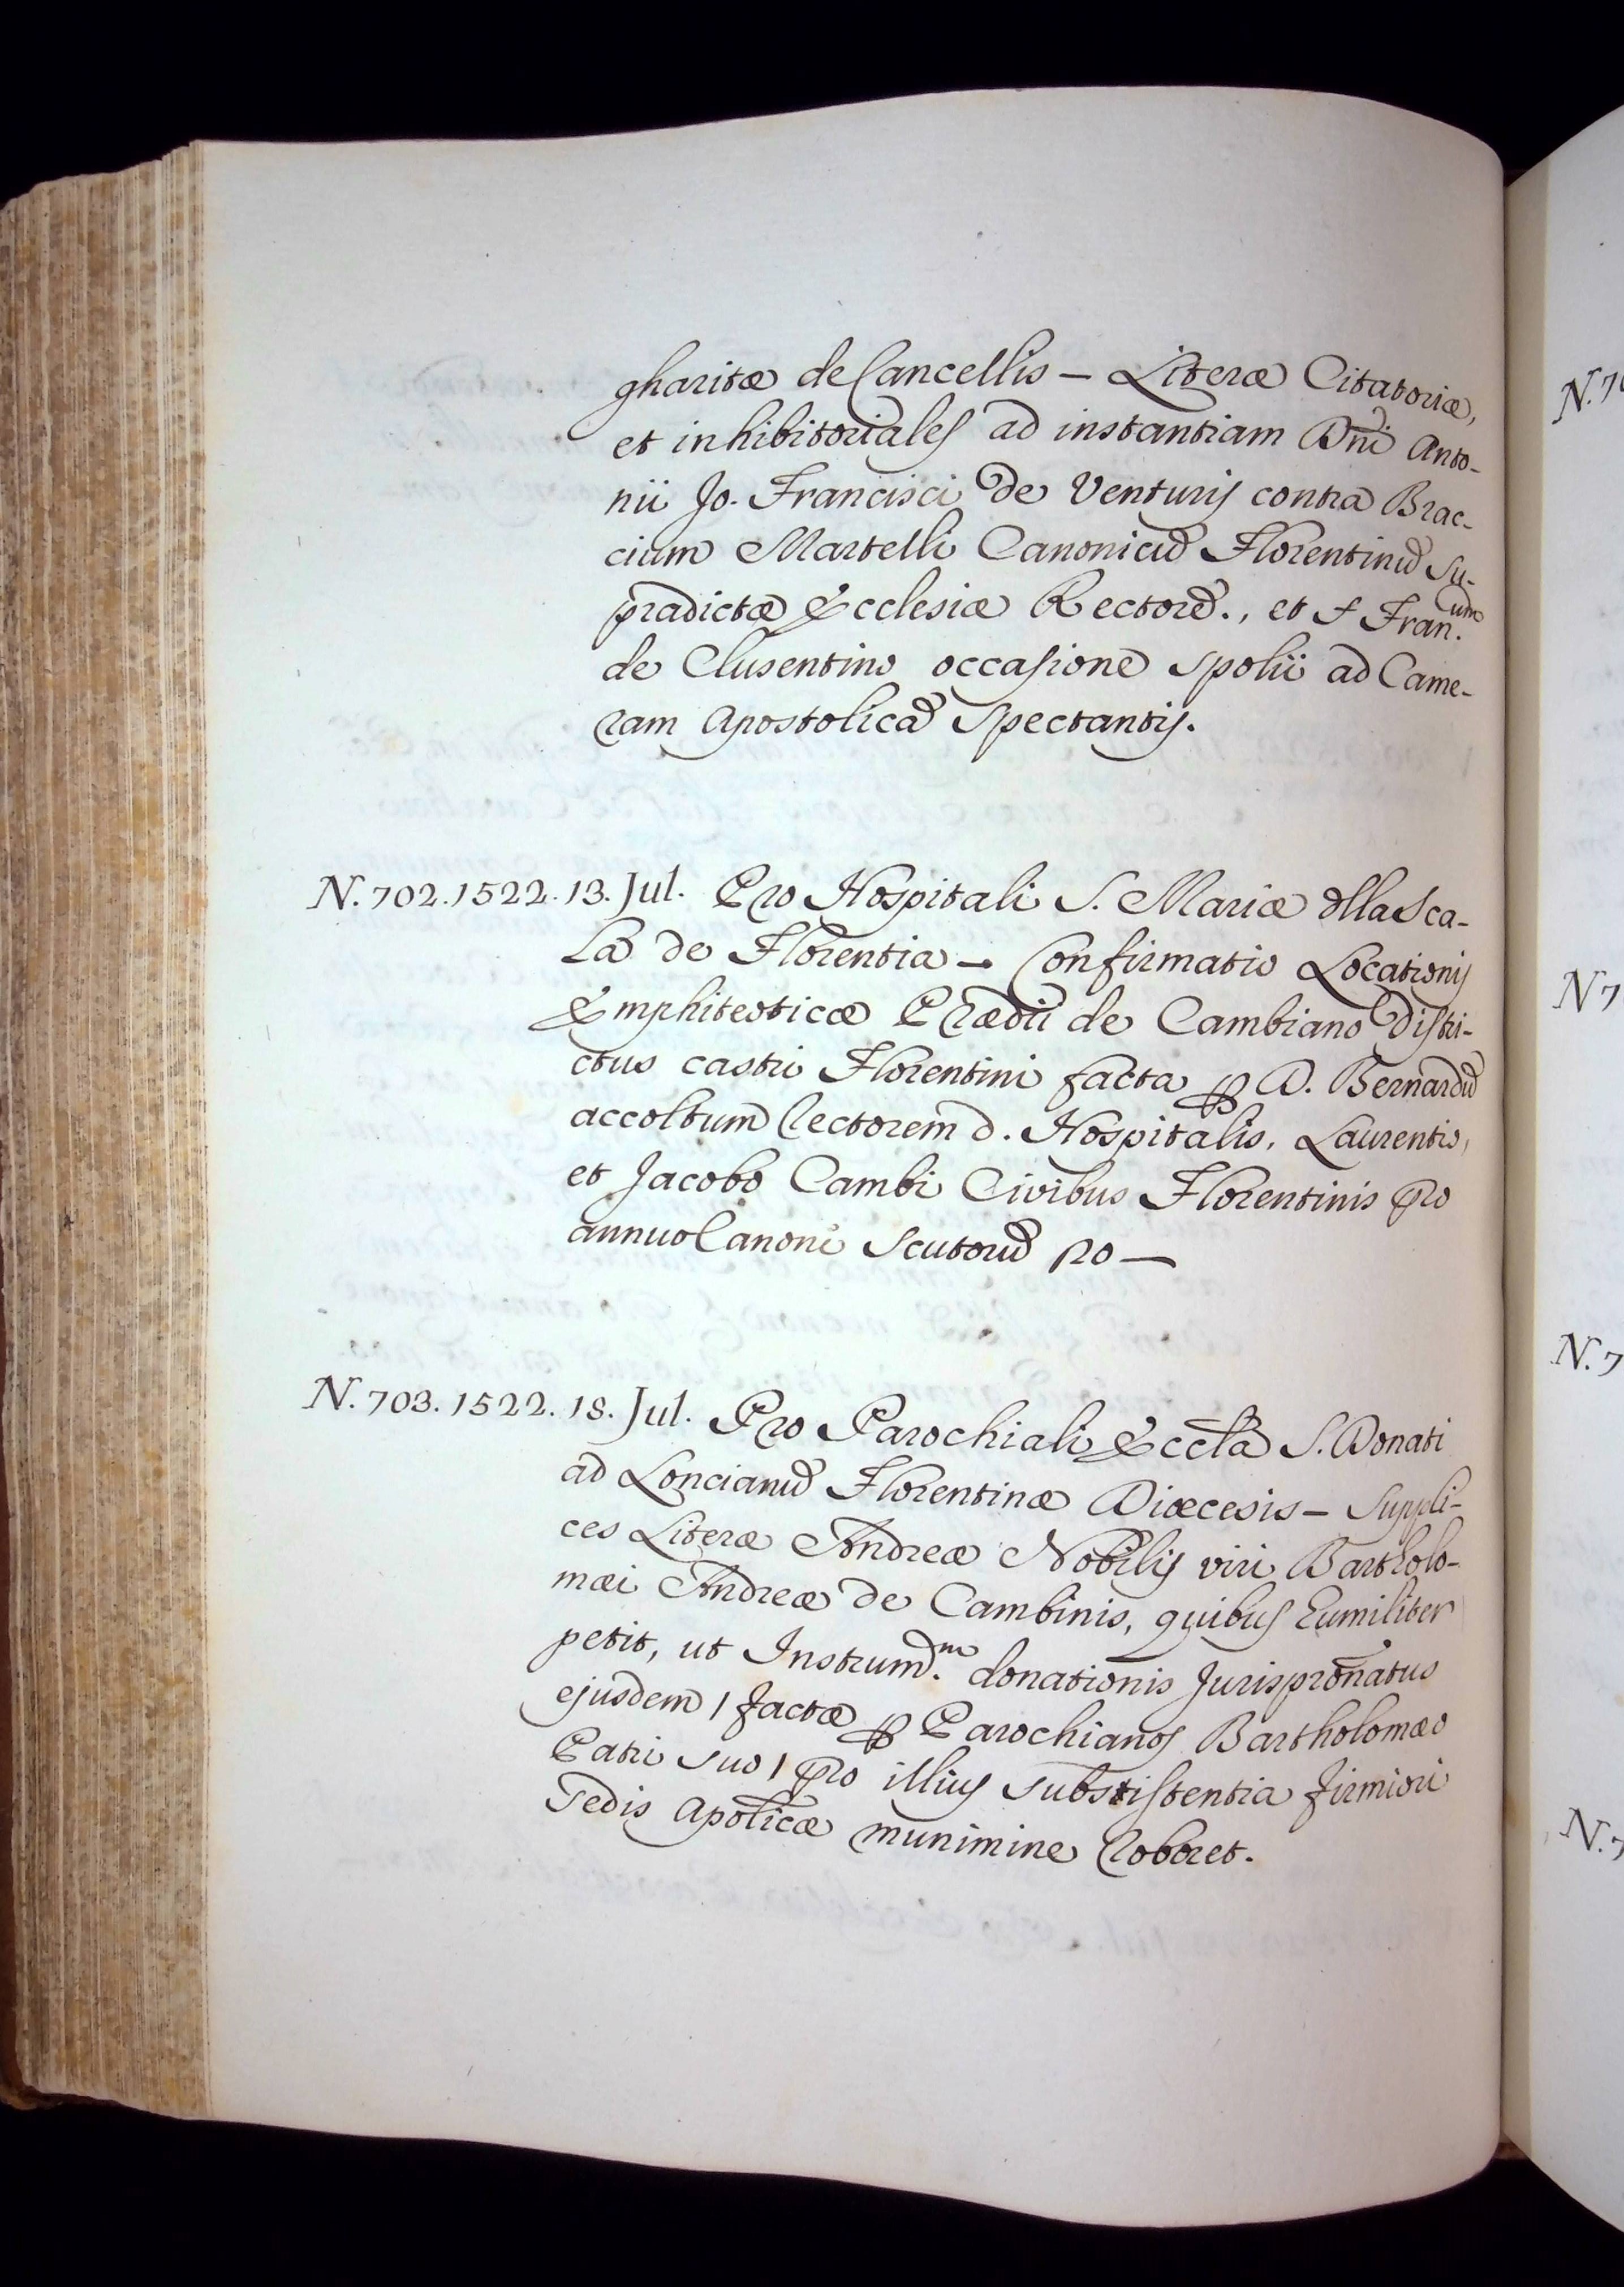 gharitæ de Cancellis — Literæ Citatoriæ,
et inhibitoriales ad instantiam Dni Anto-
nii Jo. Francisci de Venturis contra Brac-
cium Martelli Canonicũ Florentinũ su-
pradictæ Ecclesiæ Rectorẽ., et f Fran.um
de Clusentino occasione spolii ad Came-
ram Apostolicã spectantis.
N. 702. 1522. 13. Jul. Pro Hospitali S. Mariæ dlla Sca-
la de Florentia — Confirmatio Locationis
Emphiteoticæ Prædii de Cambiano distri-
ctus castri Florentini facta ꝑ D. Bernardũ
accoltum Rectorem d. Hospitalis, Laurentio,
et Jacobo Cambi Civibus Florentinis pro
annuo Canone scutorũ 120 —
N. 703. 1522. 18. Jul. Pro Parochiali Eccla S. Donati
ad Loncianũ Florentinæ Diœcesis — Suppli-
ces Literæ Andreæ Nobilis viri Bartholo-
mæi Andreæ de Cambinis, quibus humiliter
petit, ut Instrum.m donationis Jurispronatus
ejusdem / factæ ꝑ Parochianos Bartholomæo
Patri suo / pro illius substistentia firmiori
Sedis Apolicæ munimine roboret.
N. 7
N 7
N. 7
N. 7